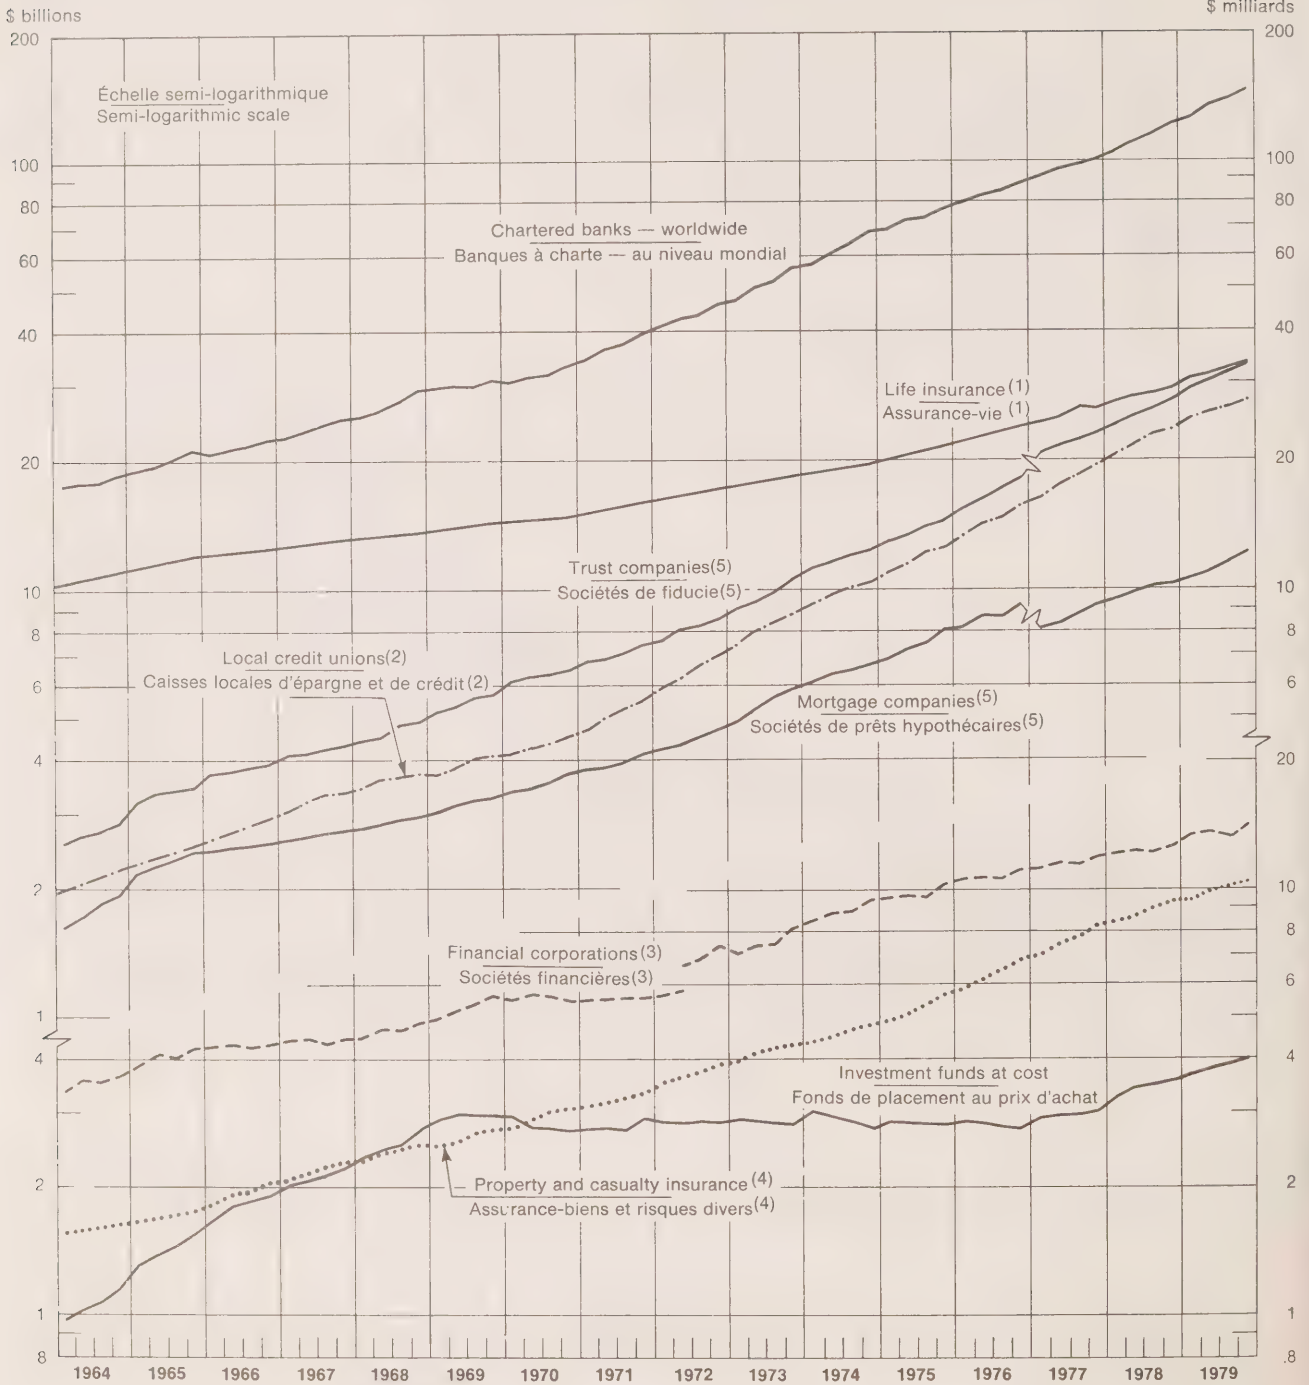 $ billions
$ milliards
200
200
Échelle semi-logarithmique
Semi-logarithmic scale
100
100
80
80
Chartered banks — worldwide
Banques à charte — au niveau mondial
60
60
40
40
Life insurance (1)
Assurance-vie (1)
20
20
Trust companies(5)
Sociétés de fiducie(5)
10
10
8
8
Local credit unions(2)
Caisses locales d'épargne et de crédit(2)
6
6
Mortgage companies(5)
Sociétés de prêts hypothécaires(5)
4
20
2
10
8
Financial corporations(3)
Sociétés financières(3)
6
1
4
4
Investment funds at cost
Fonds de placement au prix d'achat
2
2
Property and casualty insurance (4)
Assurance-biens et risques divers(4)
1
1
8
.8
1964 1965 1966 1967 1968 1969 1970 1971 1972 1973 1974 1975 1976 1977 1978 1979